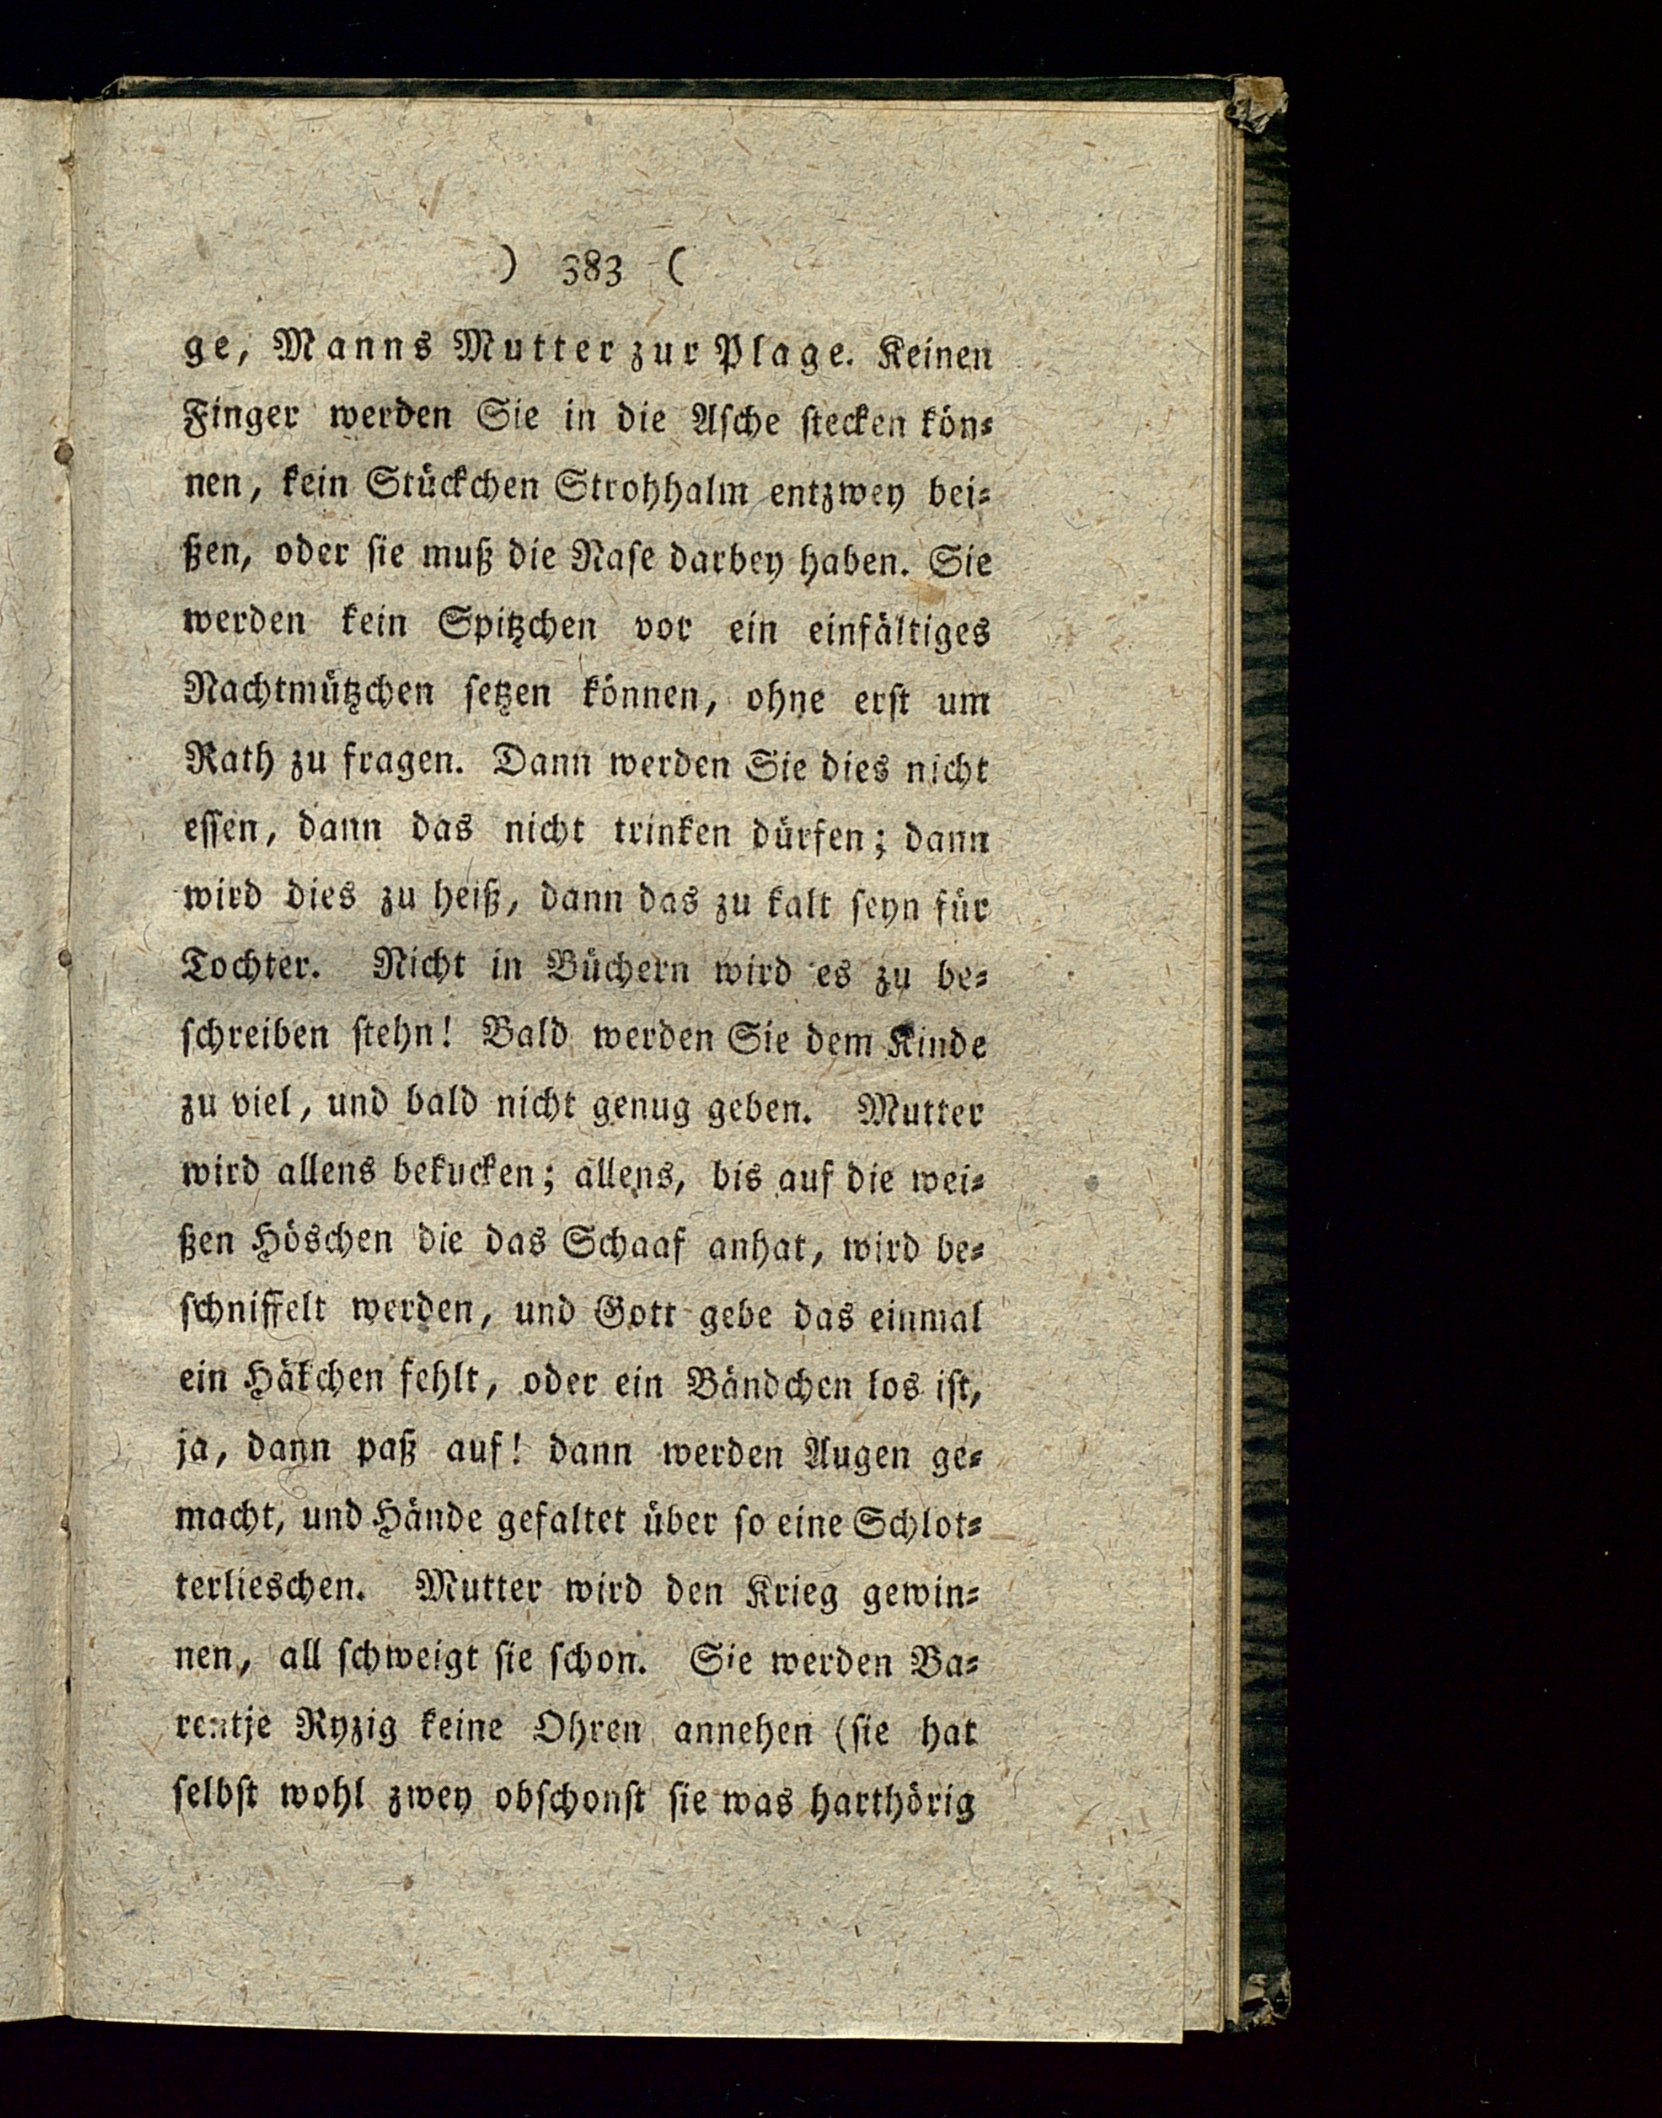 ) 383 (
ge, Manns Mutter zur Plage. Keinen
Finger werden Sie in die Asche stecken kön-
nen, kein Stückchen Strohhalm entzwey bei-
ßen, oder sie muß die Nase darbey haben. Sie
werden kein Spitzchen vor ein einfältiges
Nachtmützchen setzen können, ohne erst um
Rath zu fragen. Dann werden Sie dies nicht
essen, dann das nicht trinken dürfen; dann
wird dies zu heiß, dann das zu kalt seyn für
Tochter. Nicht in Büchern wird es zu be-
schreiben stehn! Bald werden Sie dem Kinde
zu viel, und bald nicht genug geben. Mutter
wird allens bekucken; allens, bis auf die wei-
ßen Höschen die das Schaaf anhat, wird be-
schniffelt werden, und Gott gebe das einmal
ein Häkchen fehlt, oder ein Bändchen los ist,
ja, dann paß auf! dann werden Augen ge-
macht, und Hände gefaltet über so eine Schlot-
terlieschen. Mutter wird den Krieg gewin-
nen, all schweigt sie schon. Sie werden Ba-
rentje Ryzig keine Ohren annehen (sie hat
selbst wohl zwey obschonst sie was harthörig